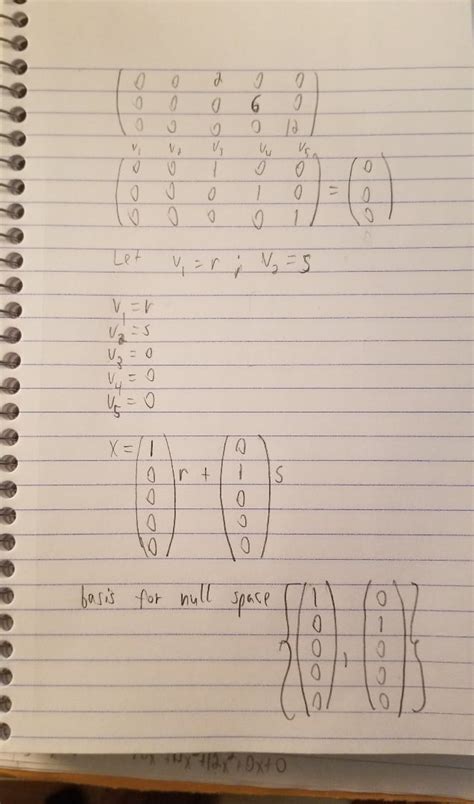 0 0 2 0 0
0 0 0 6 0
0 0 0 0 12
v₁ v₂ v₃ v₄ v₅
0 0 1 0 0 0
0 0 0 1 0 = 0
0 0 0 0 1 0
Let v₁ = r ; v₂ = s
v₁ = r
v₂ = s
v₃ = 0
v₄ = 0
v₅ = 0
x = 1 0
0 r + 1 s
0 0
0 0
0 0
basis for null space { 1 0 }
0 1
0 , 0
0 0
0 0
+12x²+0x+0